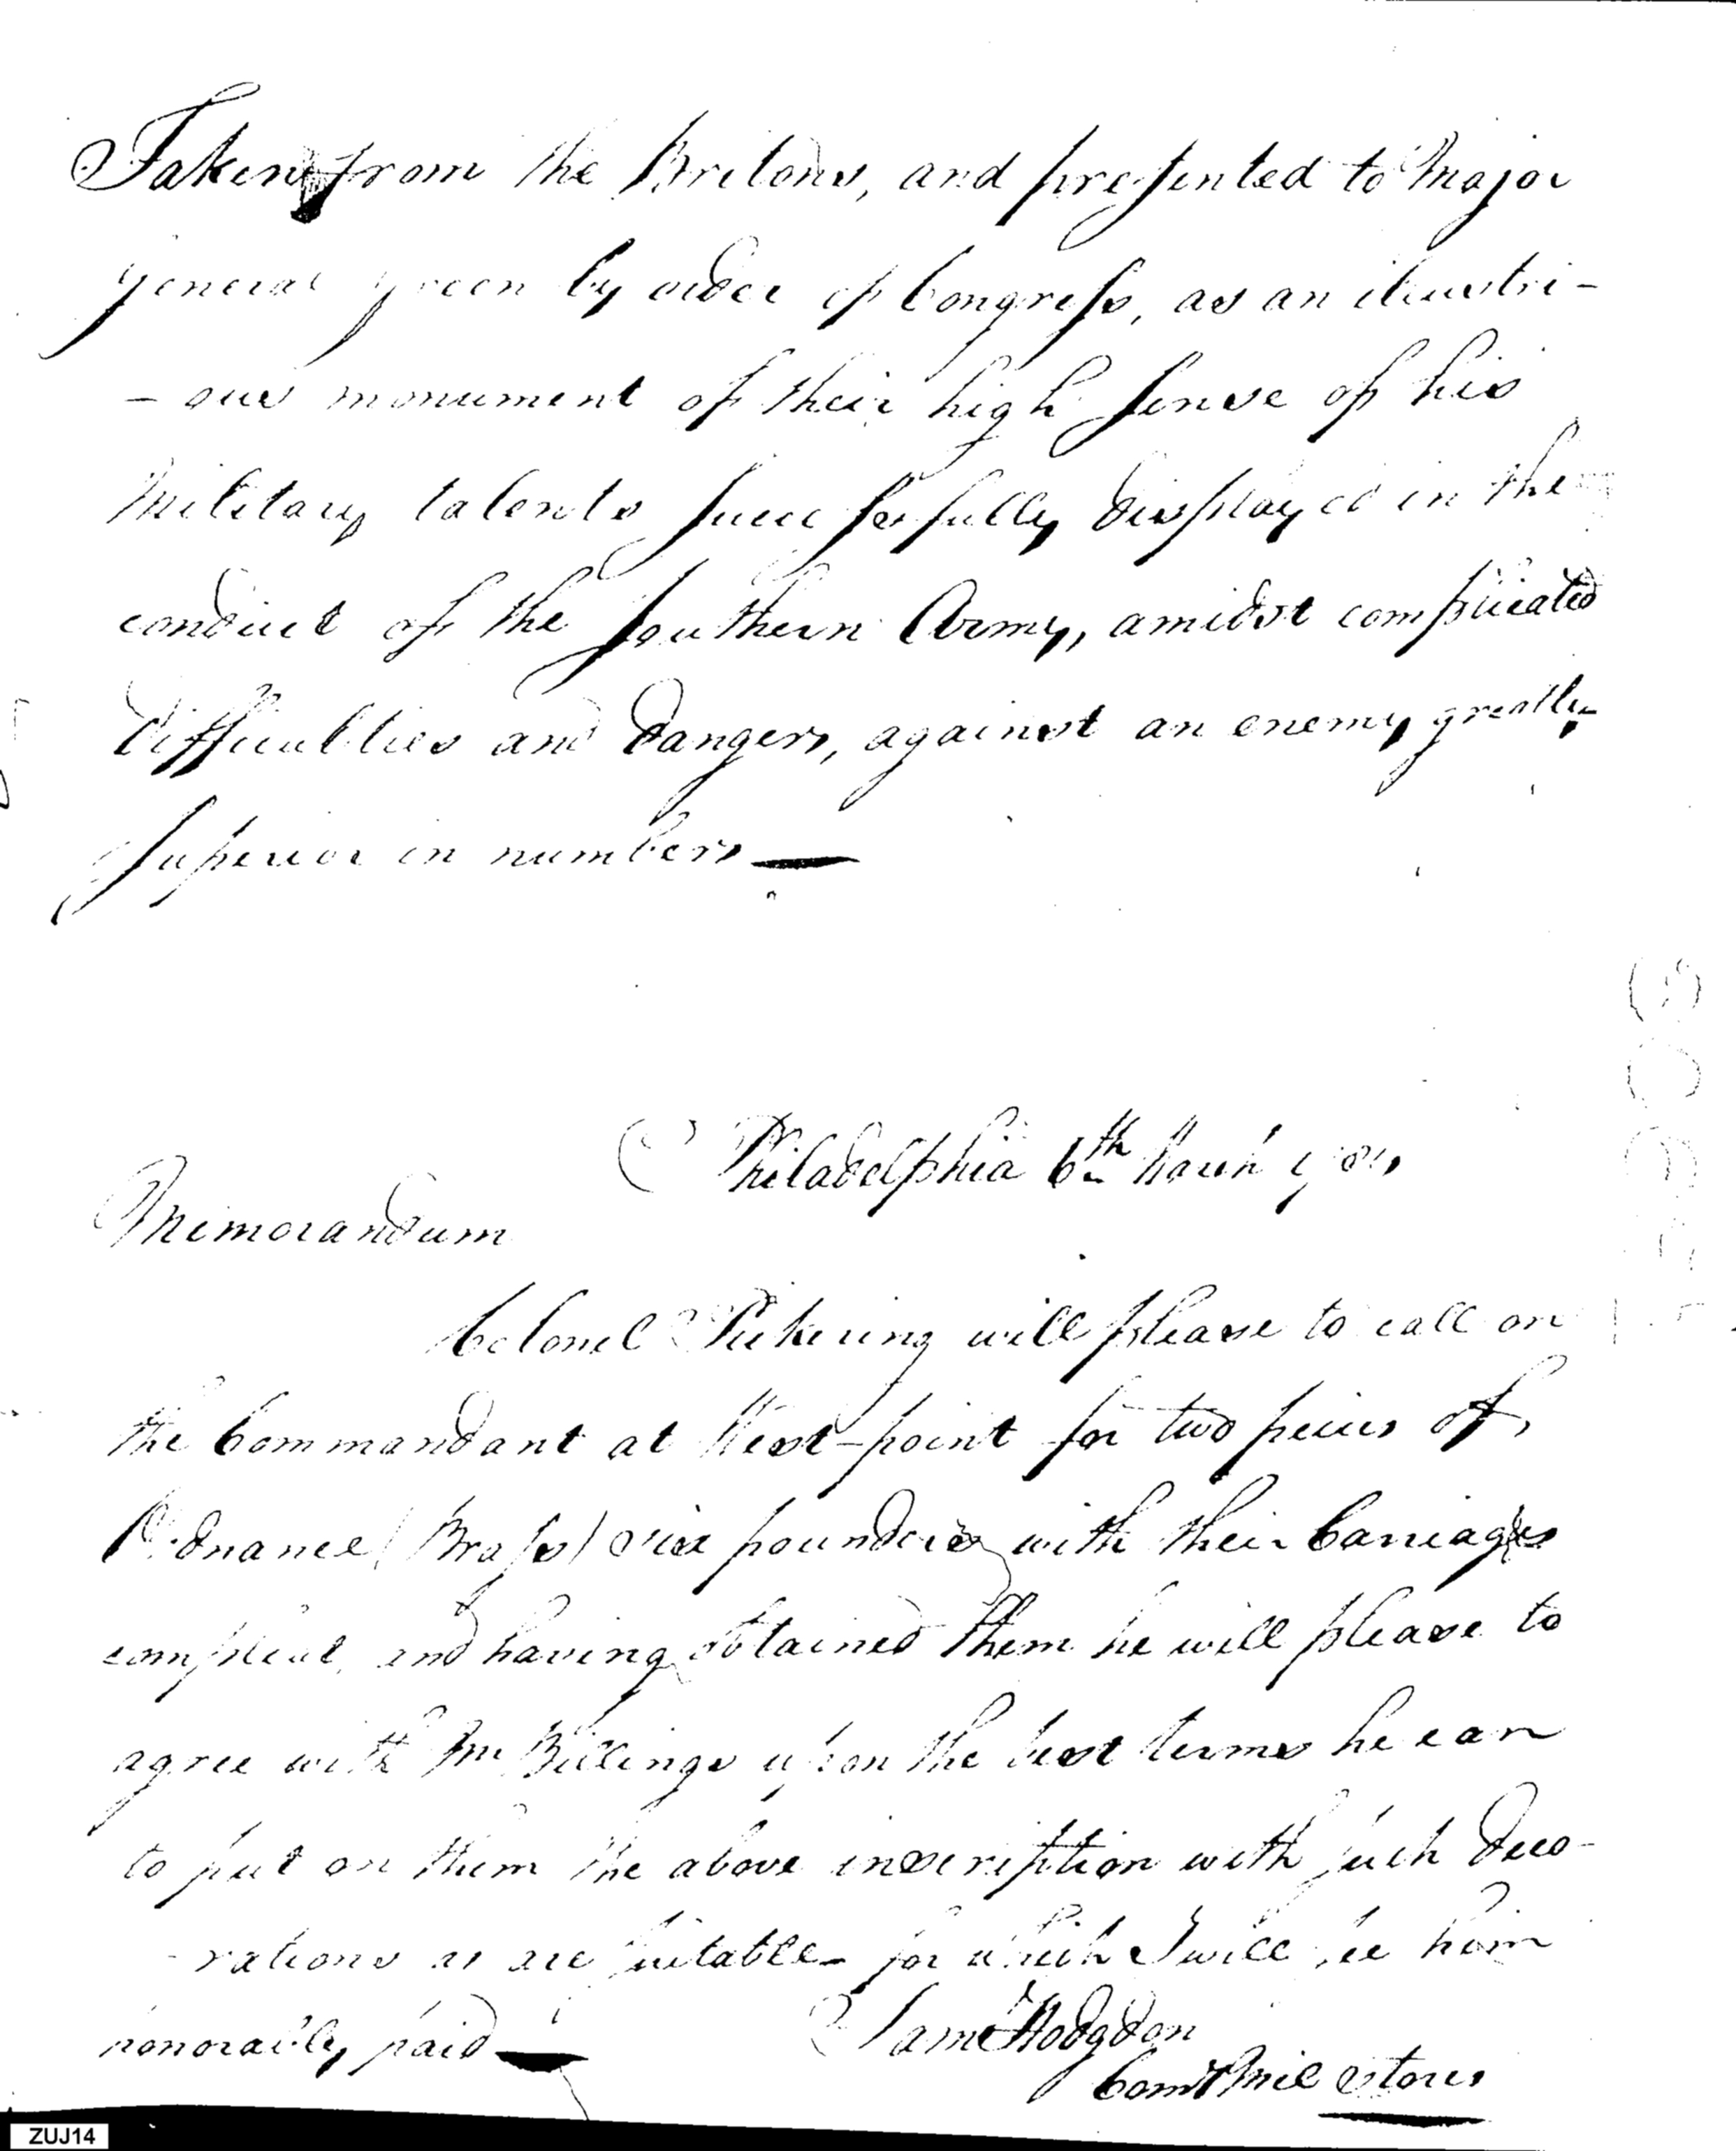 Taken from the Britons, and presented to Major
general green by order of Congress, as an illustri-
- ous monument of their high sense of his
Military talents successfully displayed in the
conduct of the southern Army, amidst complicated
difficulties and dangers, against an enemy greatly
superior in numbers —
Philadelphia 6th March
Memorandum
Colonel Pickering will please to call on
the Commandant at West-point for two peices of
Ordnance (Brass) six pounders with their Carriages
compleat, and having obtained them he will please to
agree with Mr Billings upon the best terms he can
to put on them the above inscription with such deco-
- rations as are suitable for which I will see him
honorably paid —
Saml Hodgdon
Comr Mil Stores
ZUJ14